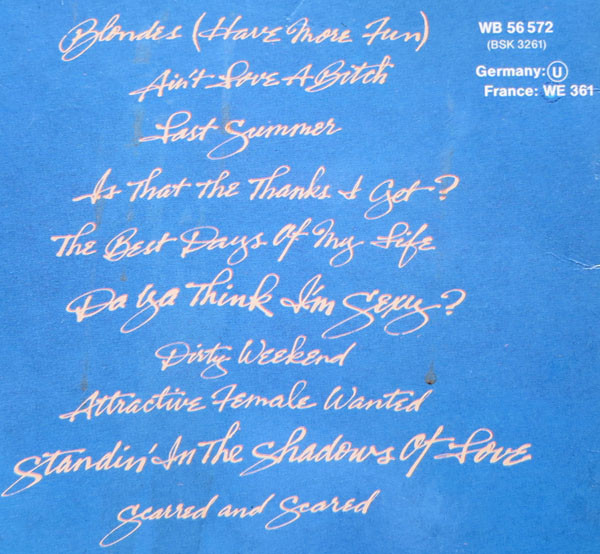 Blondes (Have More Fun)
Ain't Love A Bitch
Last Summer
Is That The Thanks I Get?
The Best Days Of My Life
Da Ya Think I'm Sexy?
Dirty Weekend
Attractive Female Wanted
Standin' In The Shadows Of Love
Scarred and Scared
WB 56 572
(BSK 3261)
Germany: U
France: WE 361